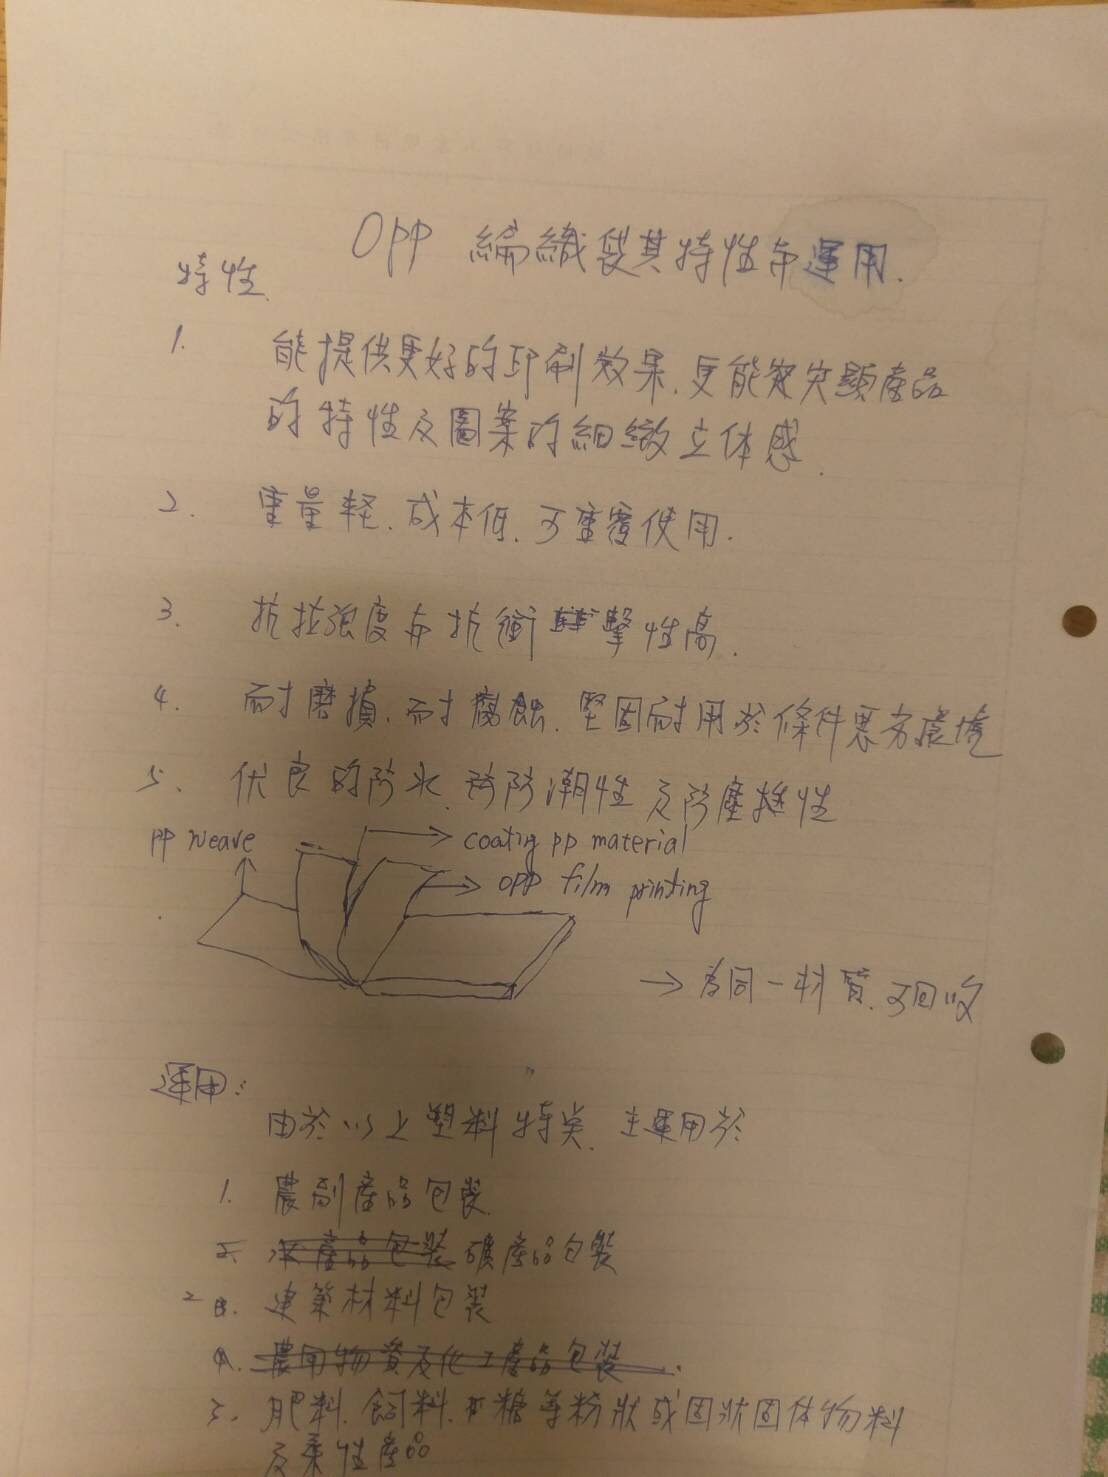 Opp 編織袋其特性與運用.
特性
1. 能提供更好的印刷效果.更能突顯產品
的特性及圖案的細緻立体感.
2. 重量輕.成本低.可重覆使用.
3. 抗拉強度与抗衝擊性高.
4. 耐磨損.耐腐蝕.堅固耐用於條件惡劣環境
5. 优良的防水.防潮性及防塵性
pp weave
coating pp material
opp film printing
→ 為同一材質.可回收
運用:
由於以上塑料特类.主運用於
1. 農副產品包裝
2. 水產品包裝 礦產品包裝
2 3. 建築材料包裝
4. 農用物資及化工產品包裝.
3. 肥料.飼料.糖等粉狀或固狀固体物料
及柔性產品